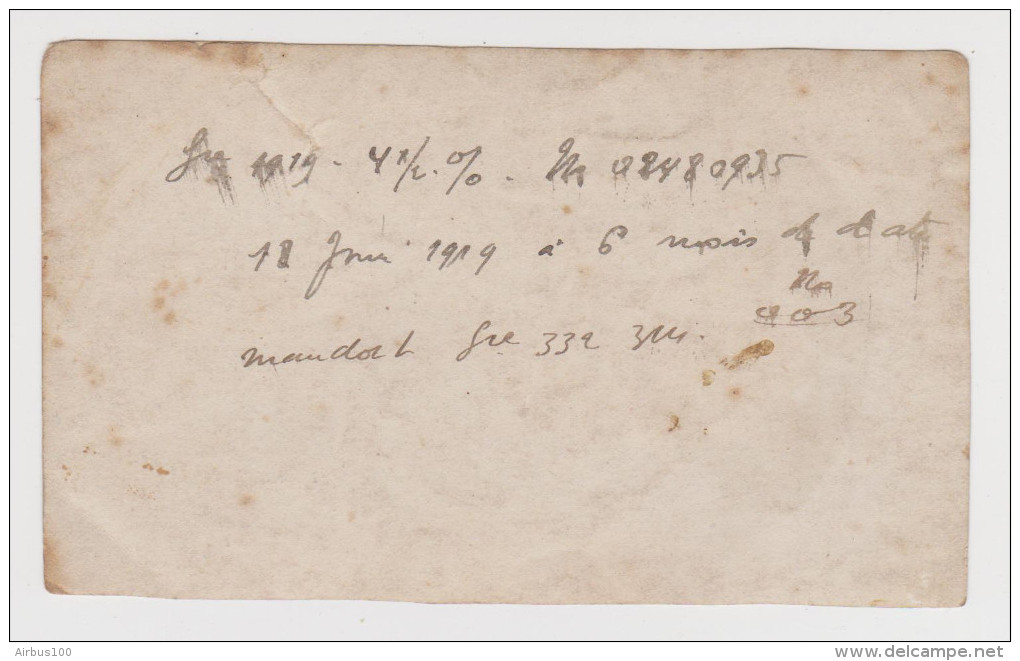 Sre 1919 - 4 1/2 % . No 0848 0935
18 Juin 1919 à 6 mois de date
No
003
mandat Sre 332 314.
Airbus100
www.delcampe.net